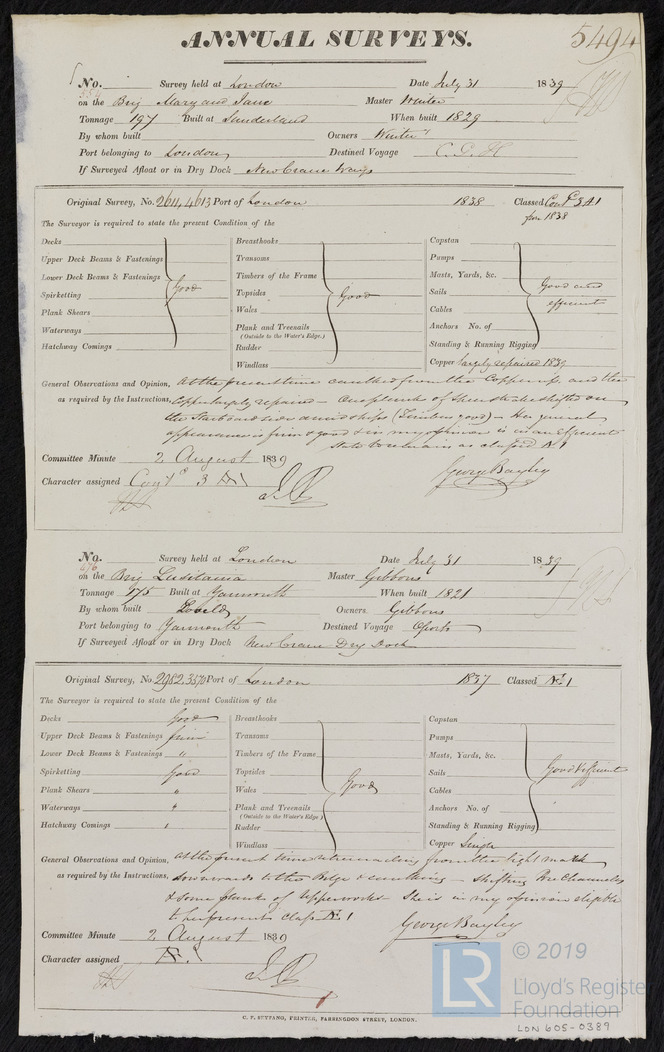 ANNUAL SURVEYS. 5494
No. Survey held at London Date July 31 1839
on the Brig Mary and Jane Master Winter
Tonnage 197 Built at Sunderland When built 1829
By whom built Owners Winter
Port belonging to London Destined Voyage C. G. H
If Surveyed Afloat or in Dry Dock New Crane Wapg
Original Survey, No. 2614, 4613 Port of London 1838 Classed Contd 3 A1
for 1838
The Surveyor is required to state the present Condition of the
Decks Breasthooks Capstan
Upper Deck Beams & Fastenings Transoms Pumps
Lower Deck Beams & Fastenings Timbers of the Frame Masts, Yards, &c.
Spirketting Good Topsides Good Sails Good and
Plank Shears Wales Cables efficient
Waterways Plank and Treenails Anchors No. of
(Outside to the Water's Edge.)
Hatchway Comings Rudder Standing & Running Rigging
Windlass Copper largely repaired 1839
General Observations and Opinion, At the present time caulked from the Copper up and the
as required by the Instructions, Copper largely repaired – One plank of sheerstrake shifted on
the Starboard side amidships (Timbers good) – Her general
appearance is firm & good & is in my opinion in an efficient
state to remain as classed A1
Committee Minute 2 August 1839 George Bayley
Character assigned Contd 3 A1
No. Survey held at London Date July 31 1839
676
on the Brig Lusitania Master Gibbons
Tonnage 175 Built at Yarmouth When built 1821
By whom built Owners Gibbons
Port belonging to Yarmouth Destined Voyage Oporto
If Surveyed Afloat or in Dry Dock New Crane Dry Dock
Original Survey, No. 2982, 3570 Port of London 1837 Classed Æ 1
The Surveyor is required to state the present Condition of the
Decks Good Breasthooks Capstan
Upper Deck Beams & Fastenings firm Transoms Pumps
Lower Deck Beams & Fastenings " Timbers of the Frame Masts, Yards, &c.
Spirketting Good Topsides Sails Good & efficient
Plank Shears " Wales Good Cables
Waterways " Plank and Treenails Anchors No. of
(Outside to the Water's Edge.)
Hatchway Comings " Rudder Standing & Running Rigging
Windlass Copper Single
General Observations and Opinion, At the present time from the light mark
as required by the Instructions, downwards to the Bilge & caulking – shifting Channels
& some plank of upperworks She is in my opinion eligible
to her present class Æ 1
George Bayley
Committee Minute 2 August 1839
Character assigned Æ 1
C. F. SEYFANG, PRINTER, FARRINGDON STREET, LONDON.
LR © 2019
Lloyd's Register
Foundation
LON 605-0389